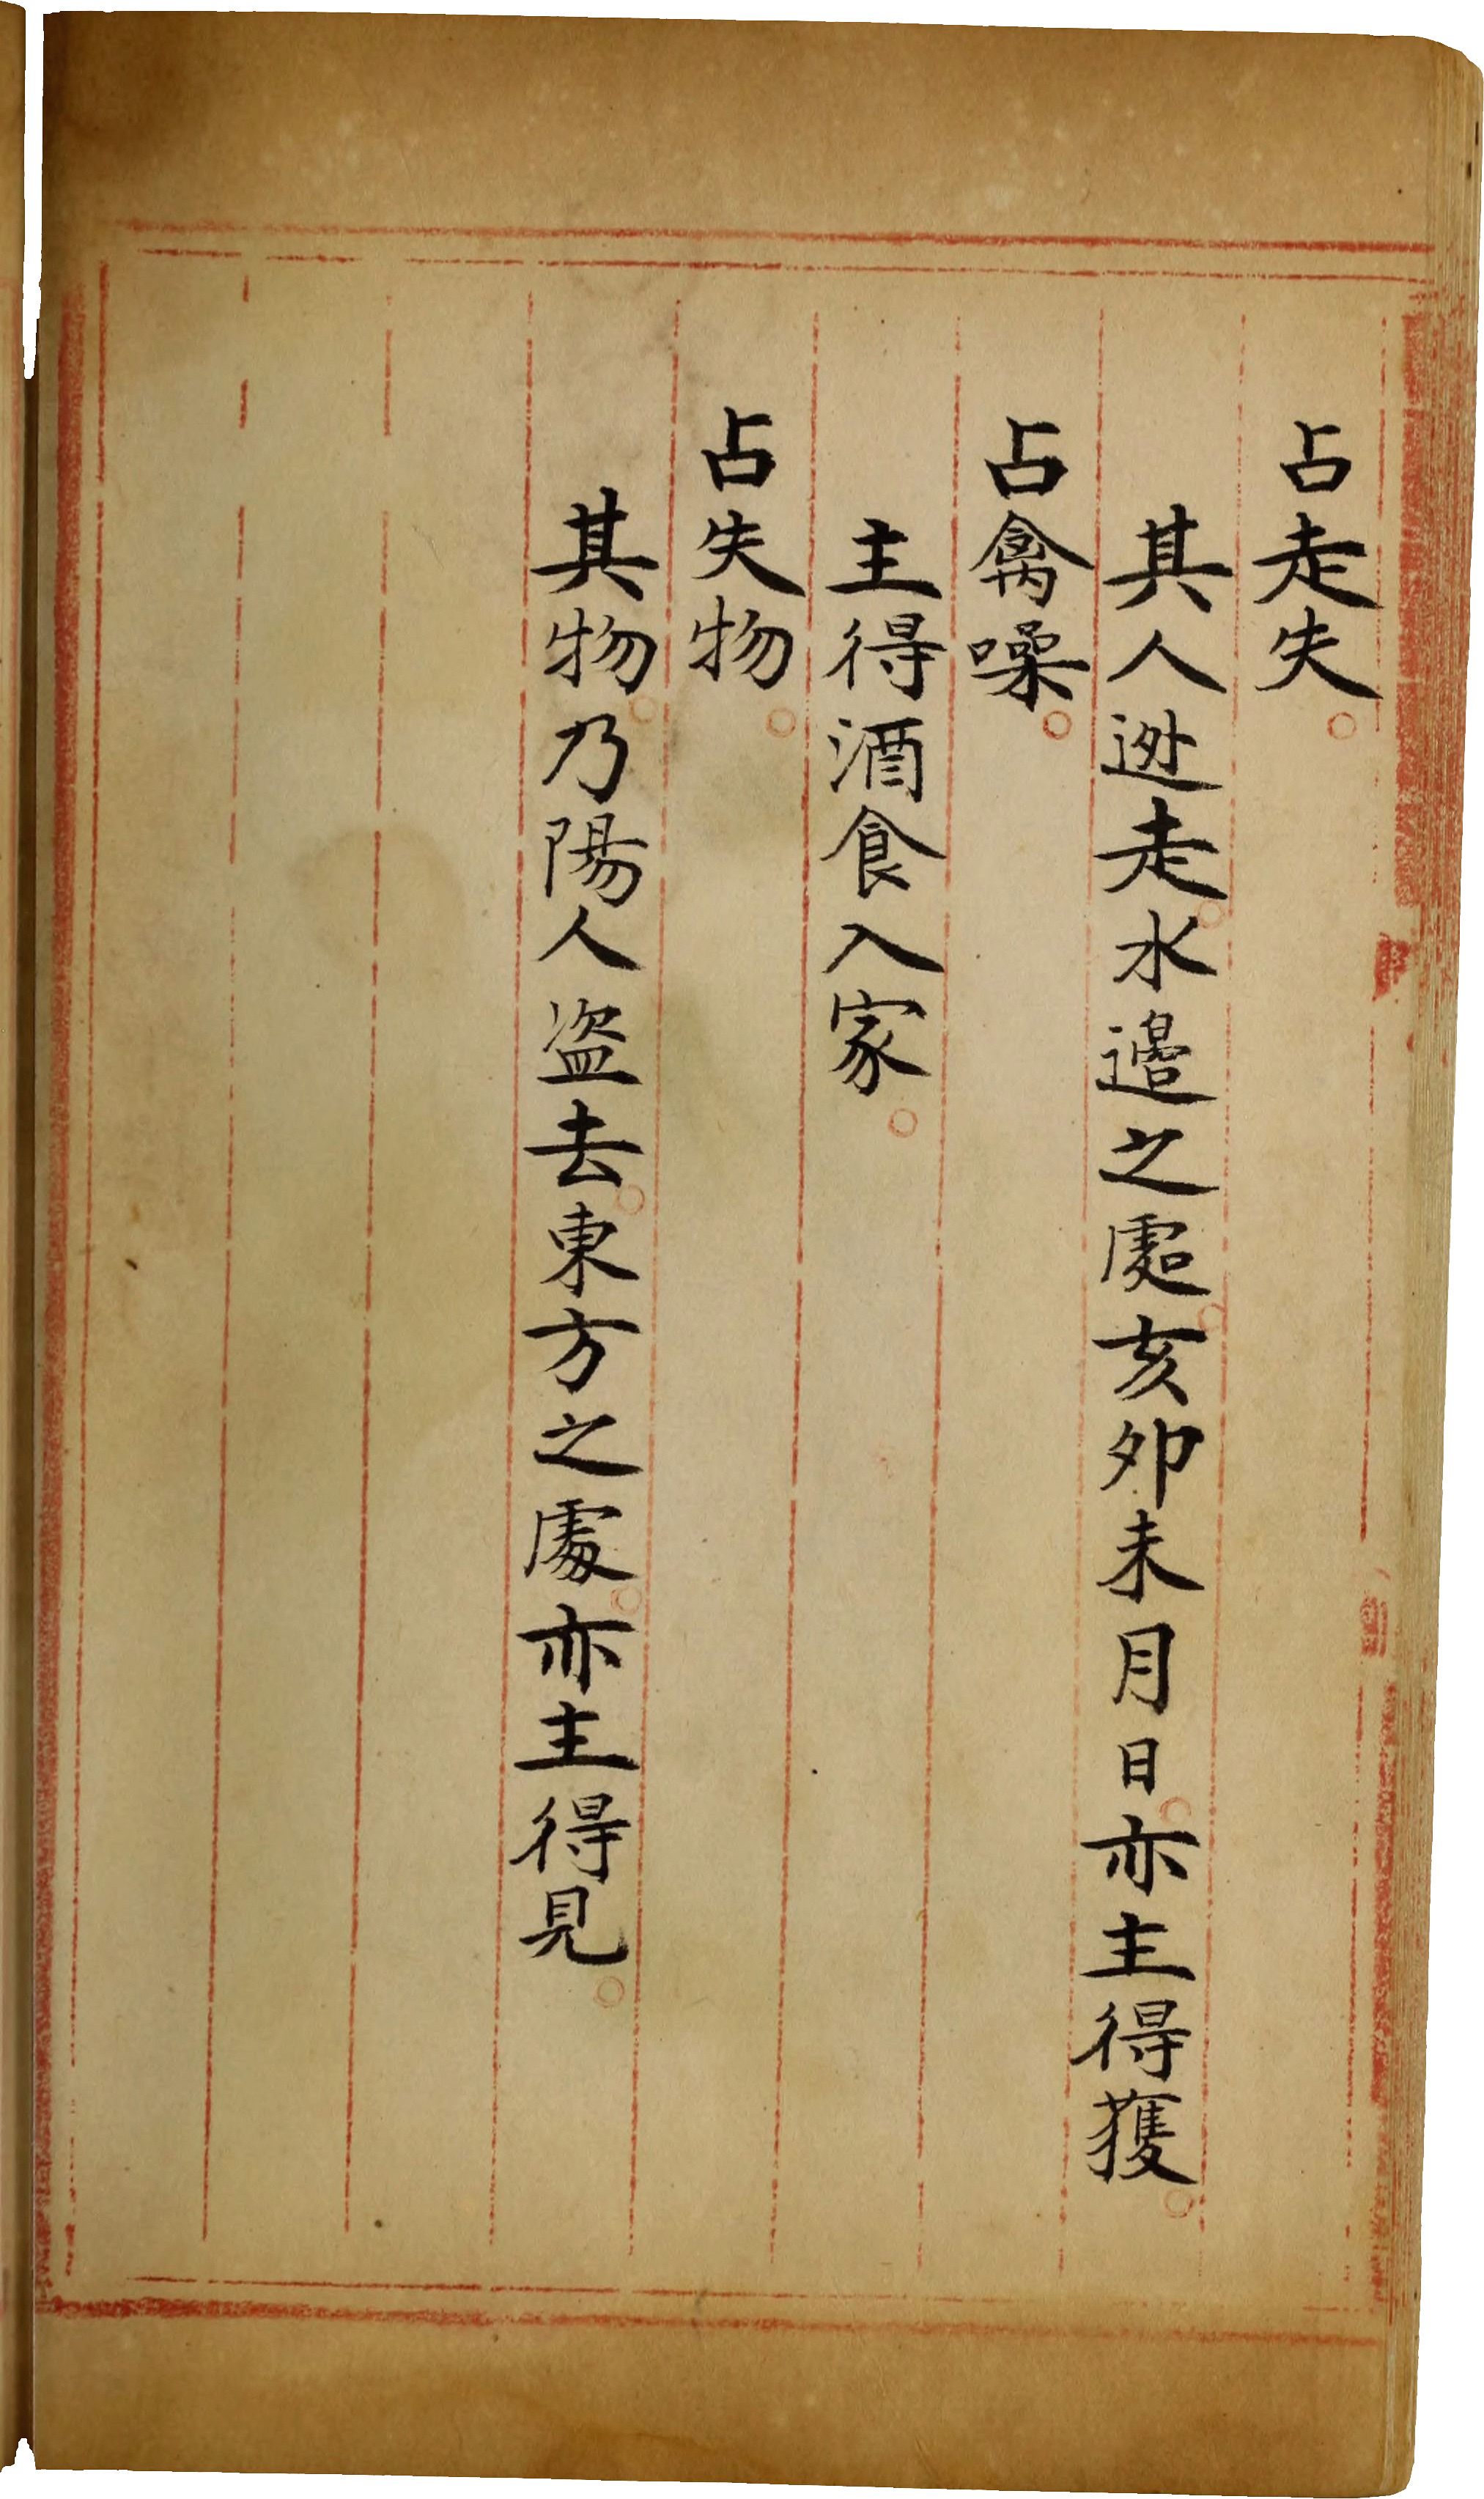 占走失。
其人迯走。水邉之處。亥夘未月日。亦主得獲。
占禽噪。
主得酒食入家。
占失物。
其物。乃陽人盗去。東方之處。亦主得見。